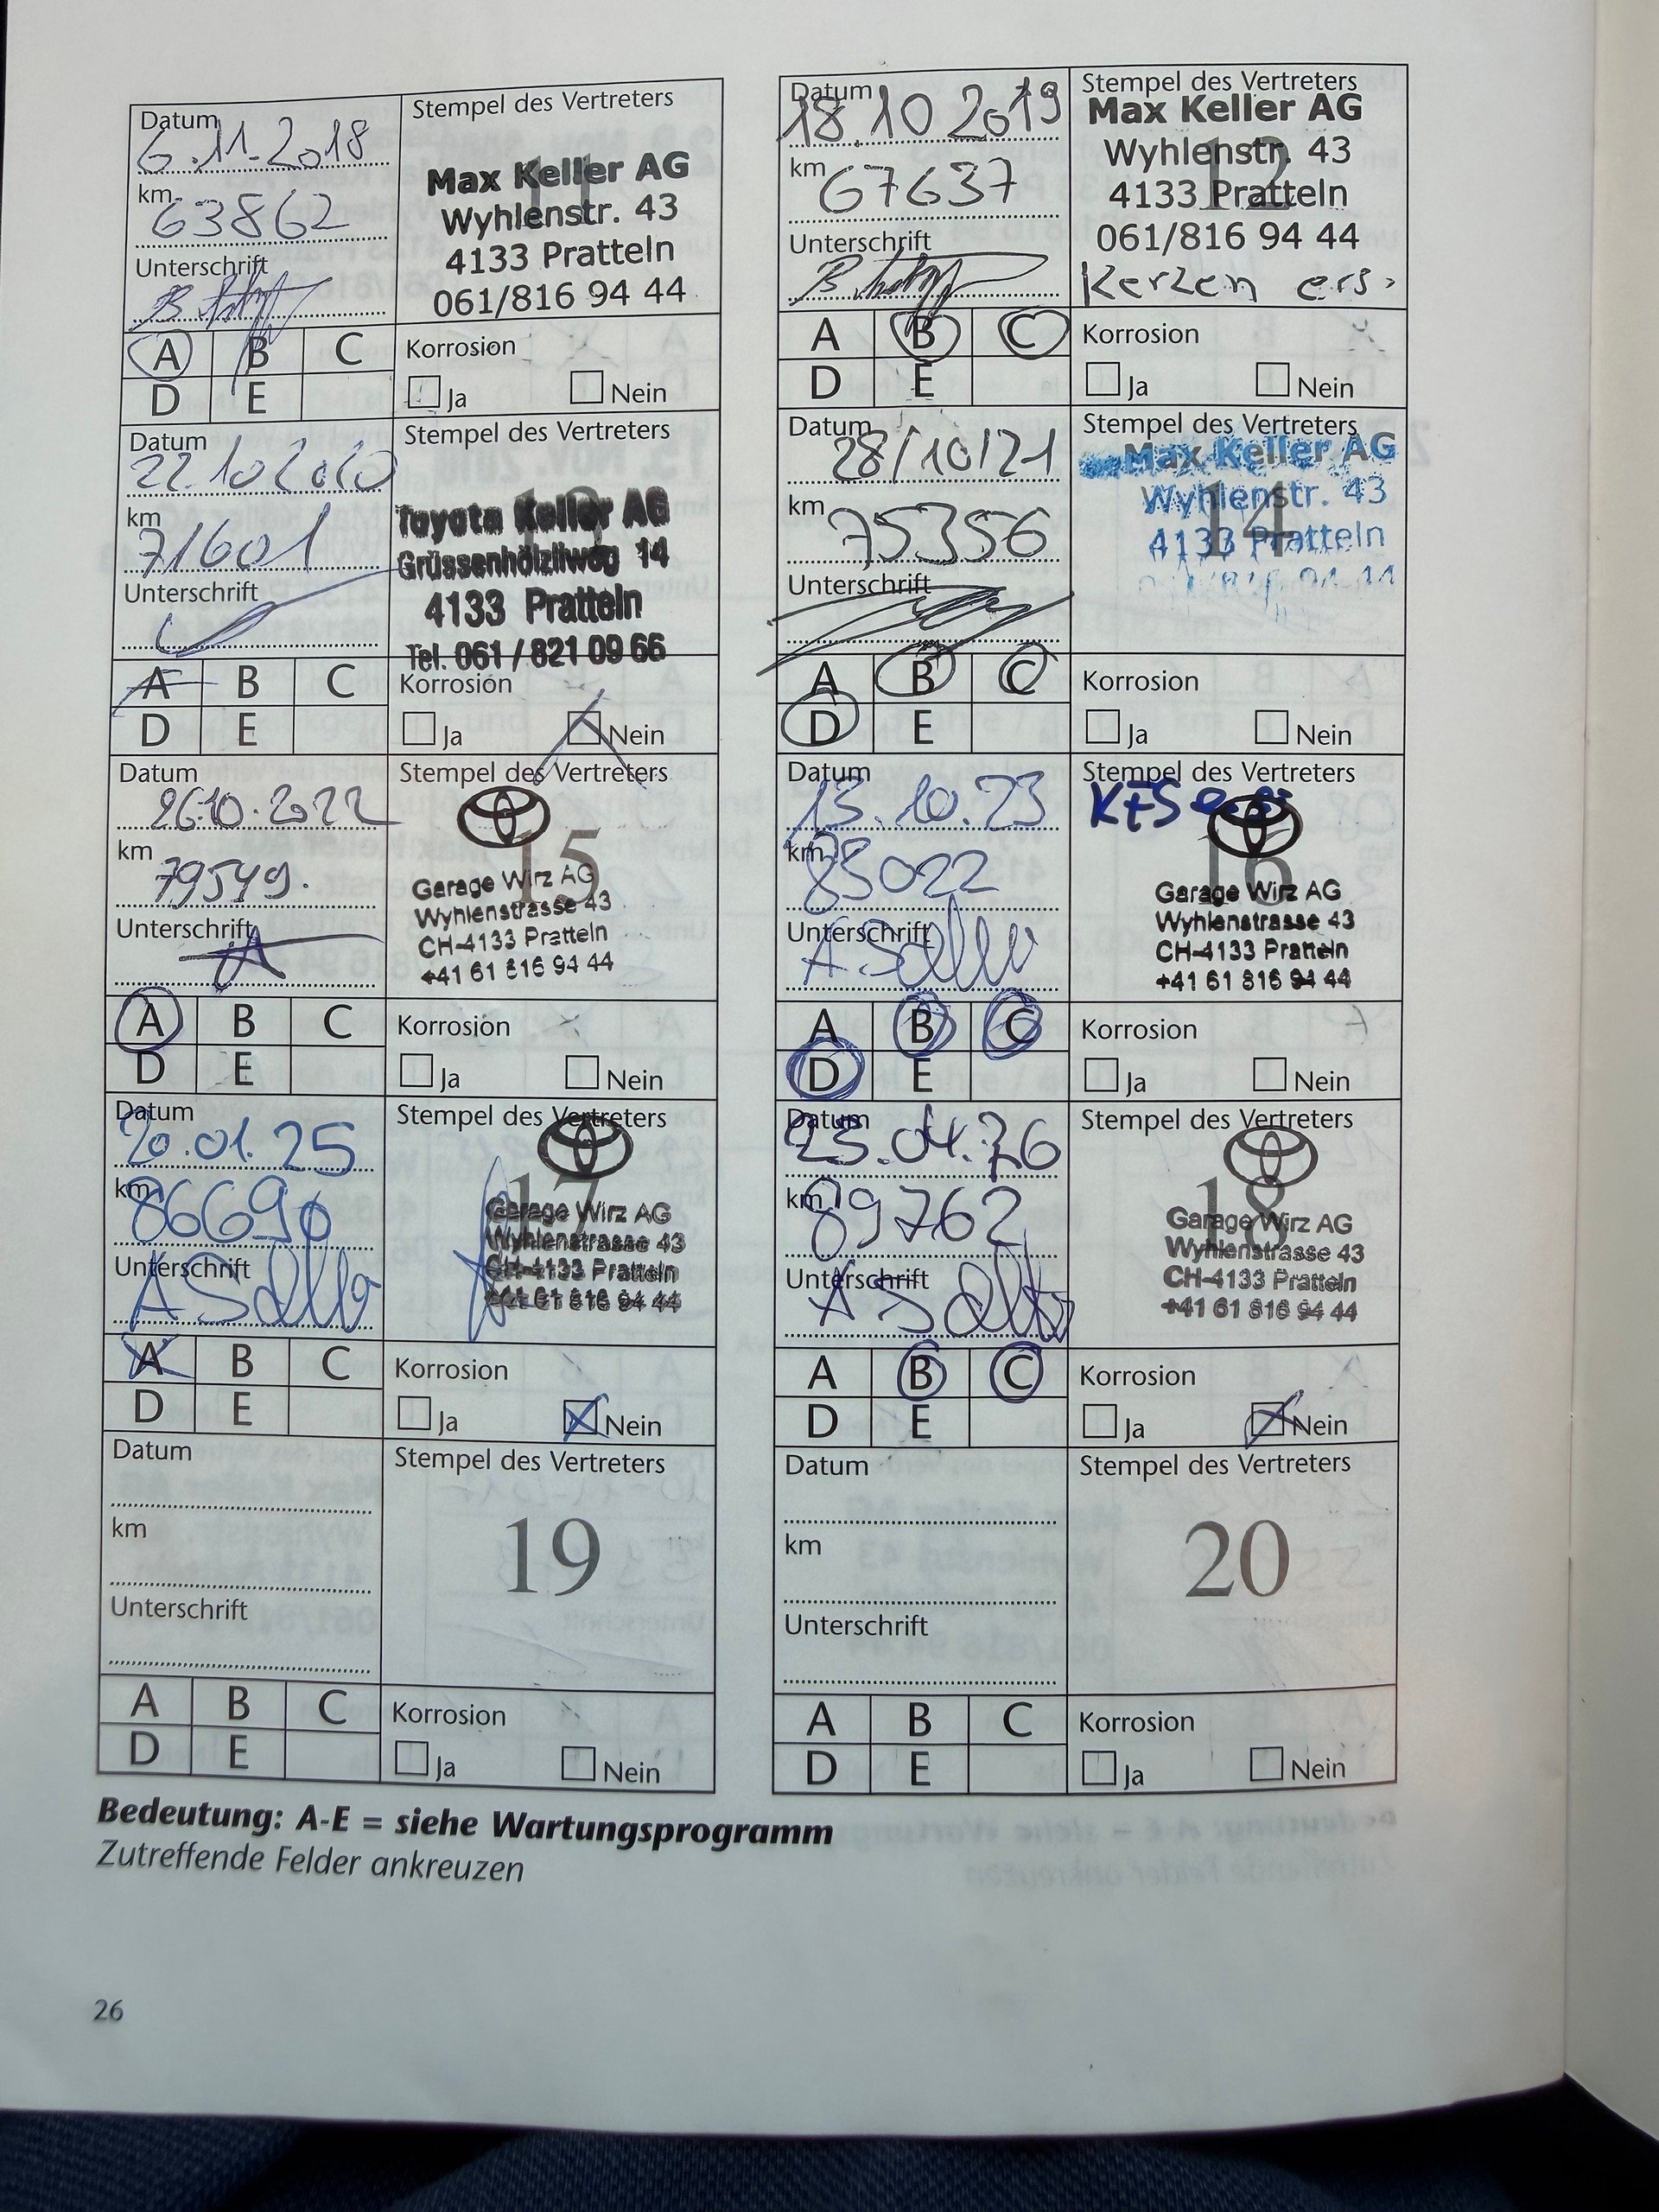 Datum
6.11.2018
km
63862
Unterschrift
Stempel des Vertreters
11
Max Keller AG
Wyhlenstr. 43
4133 Pratteln
061/816 94 44
A B C
D E
Korrosion
Ja Nein
Datum
18.10 2019
km
67637
Unterschrift
Stempel des Vertreters
12
Max Keller AG
Wyhlenstr. 43
4133 Pratteln
061/816 94 44
Kerzen ers.
A B C
D E
Korrosion
Ja Nein
Datum
22.10 2020
km
71601
Unterschrift
Stempel des Vertreters
13
Toyota Keller AG
Grüssenhölzliweg 14
4133 Pratteln
Tel. 061 / 821 09 66
A B C
D E
Korrosion
Ja Nein
Datum
28/10/21
km
75356
Unterschrift
Stempel des Vertreters
14
Max Keller AG
Wyhlenstr. 43
4133 Pratteln
061/816 94 44
A B C
D E
Korrosion
Ja Nein
Datum
26.10.2022
km
79549.
Unterschrift
Stempel des Vertreters
15
Garage Wirz AG
Wyhlenstrasse 43
CH-4133 Pratteln
+41 61 816 94 44
A B C
D E
Korrosion
Ja Nein
Datum
13.10.23
km
83022
Unterschrift
Stempel des Vertreters
16
Garage Wirz AG
Wyhlenstrasse 43
CH-4133 Pratteln
+41 61 816 94 44
A B C
D E
Korrosion
Ja Nein
Datum
20.01.25
km
86690
Unterschrift
Stempel des Vertreters
17
Garage Wirz AG
Wyhlenstrasse 43
CH-4133 Pratteln
+41 61 816 94 44
A B C
D E
Korrosion
Ja Nein
Datum
23.04.26
km
89762
Unterschrift
Stempel des Vertreters
18
Garage Wirz AG
Wyhlenstrasse 43
CH-4133 Pratteln
+41 61 816 94 44
A B C
D E
Korrosion
Ja Nein
Datum
km
Unterschrift
Stempel des Vertreters
19
A B C
D E
Korrosion
Ja Nein
Datum
km
Unterschrift
Stempel des Vertreters
20
A B C
D E
Korrosion
Ja Nein
Bedeutung: A-E = siehe Wartungsprogramm
Zutreffende Felder ankreuzen
26